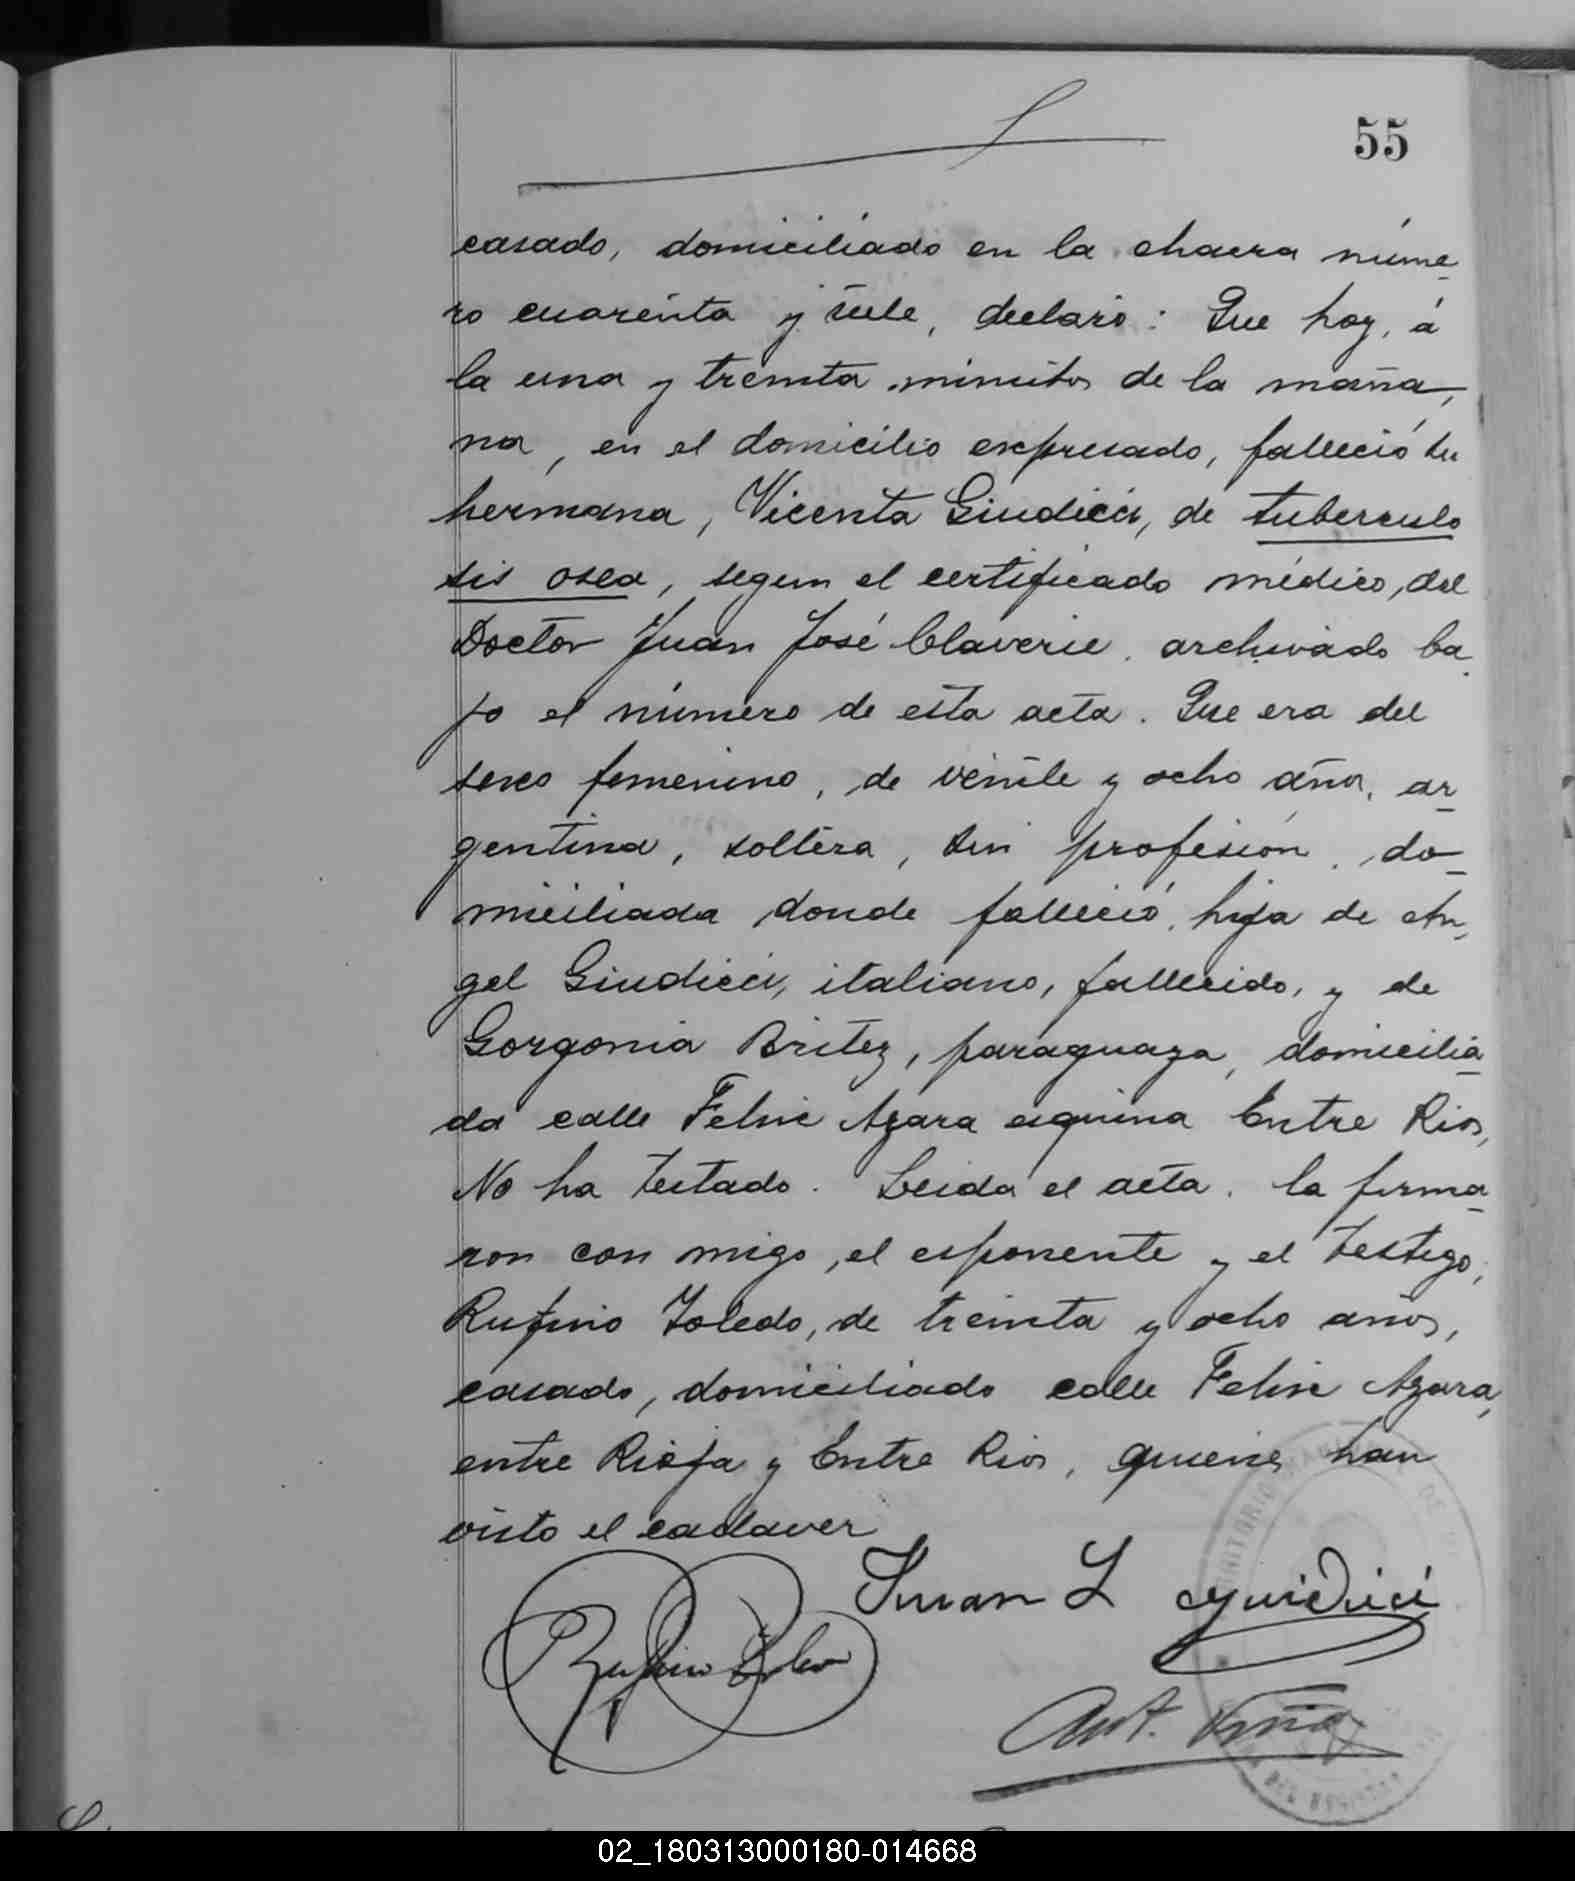 55
casado, domiciliado en la chacra núme-
ro cuarenta y siete, declaró: Que hoy, á
la una y treinta minutos de la maña-
na, en el domicilio expresado, falleció su
hermana, Vicenta Giudici, de tuberculo
sis osea, segun el certificado médico, del
Doctor Juan José Claverie, archivado ba
jo el número de esta acta. Que era del
sexo femenino, de veinte y ocho años, ar-
gentina, soltera, sin profesión, do-
miciliada donde falleció, hija de An-
gel Giudici, italiano, fallecido, y de
Gorgonia Britez, paraguaya, domicilia-
da calle Felix Azara esquina Entre Rios,
No ha testado. Leida el acta, la firma-
ron con migo, el esponente y el testigo,
Rufino Toledo, de treinta y ocho años,
casado, domiciliado calle Felix Azara,
entre Rioja y Entre Rios, quienes han
visto el cadaver
Juan L Guidici
Rufino Toledo
Ant.
02_180313000180-014668